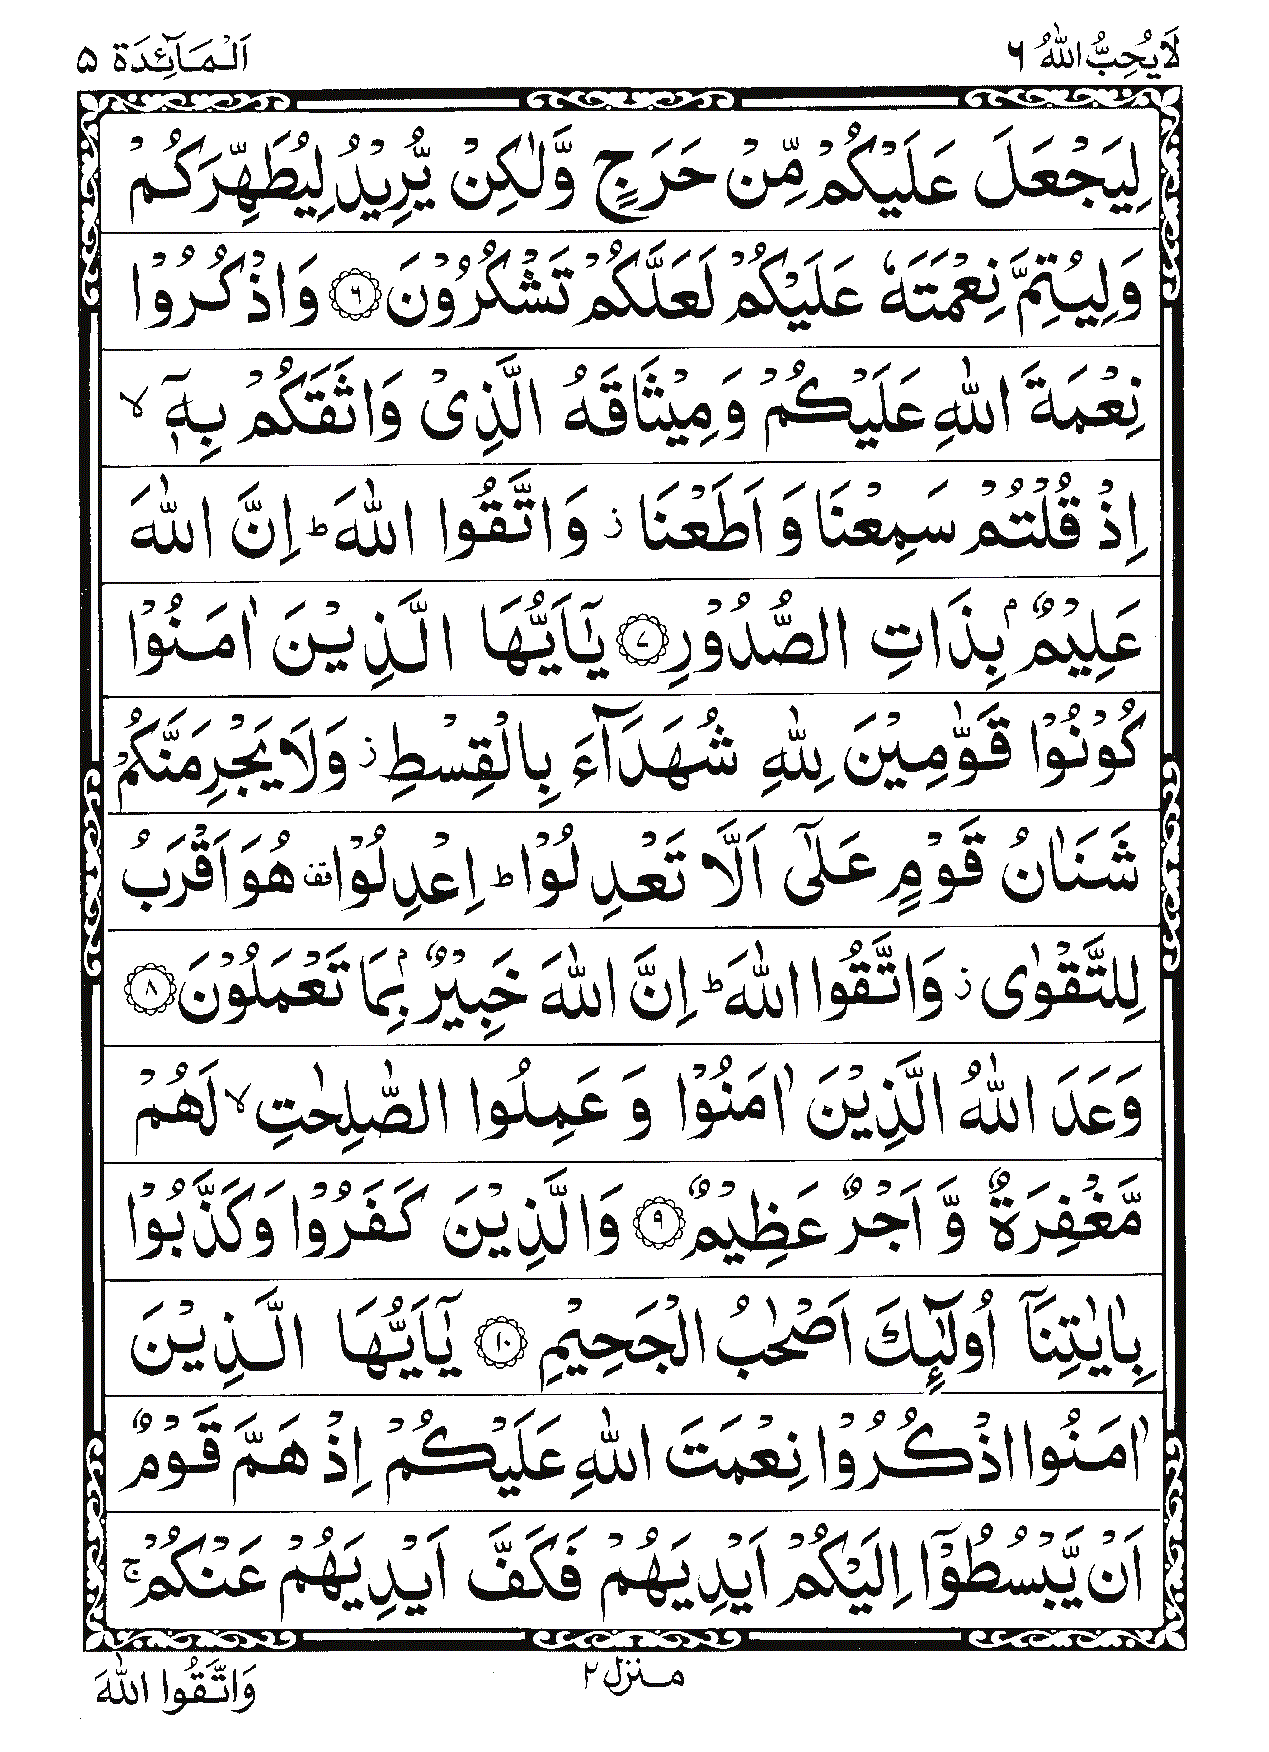 لَا يُحِبُّ اللّٰهُ ٦
اَلْمَآئِدَة ٥
لِيَجْعَلَ عَلَيْكُمْ مِّنْ حَرَجٍ وَّلٰكِنْ يُّرِيْدُ لِيُطَهِّرَكُمْ
وَلِيُتِمَّ نِعْمَتَهٗ عَلَيْكُمْ لَعَلَّكُمْ تَشْكُرُوْنَ ۝٦ وَاذْكُرُوْا
نِعْمَةَ اللّٰهِ عَلَيْكُمْ وَمِيْثَاقَهُ الَّذِىْ وَاثَقَكُمْ بِهٖۤ ۙ
اِذْ قُلْتُمْ سَمِعْنَا وَ اَطَعْنَا ز وَاتَّقُوا اللّٰهَ ؕ اِنَّ اللّٰهَ
عَلِيْمٌۢ بِذَاتِ الصُّدُوْرِ ۝٧ يٰۤاَيُّهَا الَّذِيْنَ اٰمَنُوْا
كُوْنُوْا قَوّٰمِيْنَ لِلّٰهِ شُهَدَآءَ بِالْقِسْطِ ز وَلَا يَجْرِمَنَّكُمْ
شَنَاٰنُ قَوْمٍ عَلٰٓى اَلَّا تَعْدِلُوْا ؕ اِعْدِلُوْا قف هُوَ اَقْرَبُ
لِلتَّقْوٰى ز وَاتَّقُوا اللّٰهَ ؕ اِنَّ اللّٰهَ خَبِيْرٌۢ بِمَا تَعْمَلُوْنَ ۝٨
وَعَدَ اللّٰهُ الَّذِيْنَ اٰمَنُوْا وَ عَمِلُوا الصّٰلِحٰتِ ۙ لَهُمْ
مَّغْفِرَةٌ وَّ اَجْرٌ عَظِيْمٌ ۝٩ وَالَّذِيْنَ كَفَرُوْا وَكَذَّبُوْا
بِاٰيٰتِنَاۤ اُولٰٓئِكَ اَصْحٰبُ الْجَحِيْمِ ۝١٠ يٰۤاَيُّهَا الَّذِيْنَ
اٰمَنُوا اذْكُرُوْا نِعْمَتَ اللّٰهِ عَلَيْكُمْ اِذْ هَمَّ قَوْمٌ
اَنْ يَّبْسُطُوْۤا اِلَيْكُمْ اَيْدِيَهُمْ فَكَفَّ اَيْدِيَهُمْ عَنْكُمْ ۚ
منزل ٢
وَاتَّقُوا اللّٰهَ